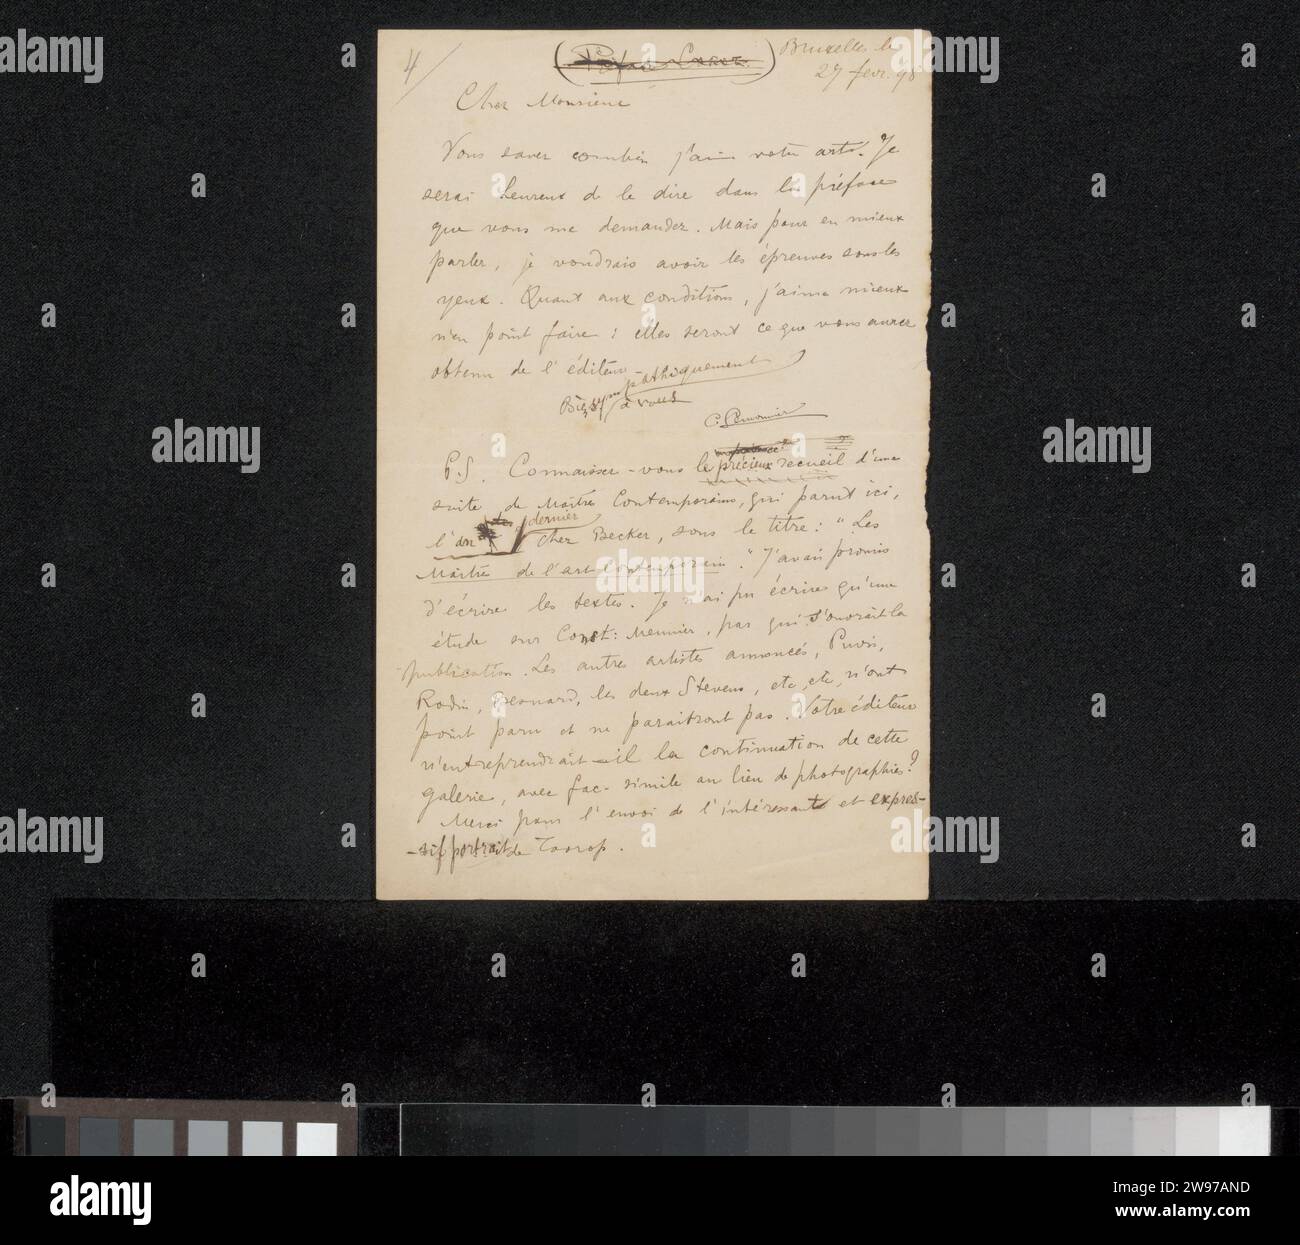 4/
Bruxelles le
27 fevr. 98
Cher Monsieur
Vous savez combien j'aime votre art. Je
serai heureux de le dire dans la préface
que vous me demandez. Mais pour en mieux
parler, je voudrais avoir les épreuves sous les
yeux. Quant aux conditions, j'aime mieux
n'en point faire : elles seront ce que vous aurez
obtenu de l'éditeur
Bien sympathiquement
à vous
C. Lemonnier
P.S. Connaissez-vous le précieux recueil d'une
suite de Maîtres Contemporains, qui parut ici,
l'an dernier chez Becker, sous le titre : "Les
Maîtres de l'art Contemporain". J'avais promis
d'écrire les textes. Je n'ai pu écrire qu'une
étude sur Const: Meunier, par qui s'ouvrait la
publication. Les autres artistes annoncés, Puvis,
Rodin, Besnard, les deux Stevens, etc, etc, n'ont
point paru et ne paraîtront pas. Votre éditeur
n'entreprendrait-il la continuation de cette
galerie, avec fac-simile au lieu de photographies?
Merci pour l'envoi de l'intéressant et expres-
-sif portrait de Toorop.
alamy
Image ID: 2W97AND
www.alamy.com